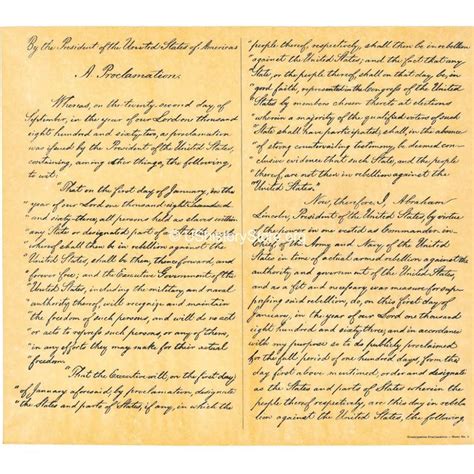 By the President of the United States of America:
A Proclamation.
Whereas, on the twenty-second day of
September, in the year of our Lord one thousand
eight hundred and sixty-two, a proclamation
was issued by the President of the United States,
containing, among other things, the following,
to wit:
"That on the first day of January, in the
"year of our Lord one thousand eight hundred
"and sixty-three, all persons held as slaves within
"any State or designated part of a State, the people
"whereof shall then be in rebellion against the
"United States, shall be then, thenceforward, and
"forever free; and the Executive Government of the
"United States, including the military and naval
"authority thereof, will recognize and maintain
"the freedom of such persons, and will do no act
"or acts to repress such persons, or any of them,
"in any efforts they may make for their actual
"freedom.
"That the Executive will, on the first day
"of January aforesaid, by proclamation, designate
"the States and parts of States, if any, in which the
people thereof, respectively, shall then be in rebellion
against the United States; and the fact that any
State, or the people thereof, shall on that day be, in
good faith, represented in the Congress of the United
States by members chosen thereto at elections
wherein a majority of the qualified voters of such
State shall have participated, shall, in the absence
of strong countervailing testimony, be deemed con-
clusive evidence that such State, and the people
thereof, are not then in rebellion against the
United States."
Now, therefore I, Abraham
Lincoln, President of the United States, by virtue
of the power in me vested as Commander-in-
Chief of the Army and Navy of the United
States in time of actual armed rebellion against the
authority and government of the United States,
and as a fit and necessary war measure for sup-
pressing said rebellion, do, on this first day of
January, in the year of our Lord one thousand
eight hundred and sixty-three, and in accordance
with my purpose so to do publicly proclaimed
for the full period of one hundred days, from the
day first above mentioned, order and designate
as the States and parts of States wherein the
people thereof respectively, are this day in rebel-
lion against the United States, the following,
Emancipation Proclamation